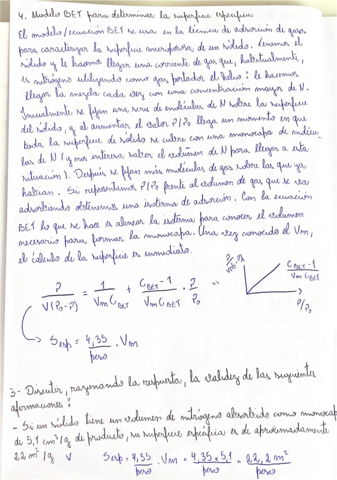 4. Modelo BET para determinar la superficie específica
El modelo/ecuación BET se usa en la técnica de adsorción de gases
para caracterizar la superficie microporosa de un sólido. Tenemos el
sólido y le hacemos llegar una corriente de gas que, habitualmente,
es nitrógeno utilizando como gas portador el helio: le hacemos
llegar la mezcla cada vez con una concentración mayor de N.
Inicialmente se fijan una serie de moléculas de N sobre la superficie
del sólido, y al aumentar el valor P/P₀ llega un momento en que
toda la superficie de sólido se cubre con una monocapa de molécu-
las de N (y nos interesa saber el volumen de N para llegar a esta
situación). Después se fijan más moléculas de gas sobre las que ya
habían. Si representamos P/P₀ frente al volumen de gas que se va
adsorbiendo obtenemos una isoterma de adsorción. Con la ecuación
BET lo que se hace es alinear la isoterma para conocer el volumen
necesario para formar la monocapa. Una vez conocido el Vm,
el cálculo de la superficie es inmediato.
P / V(P₀-P) = 1 / Vm C_BET + C_BET - 1 / Vm C_BET · P / P₀
P / V(P₀-P)
C_BET - 1 / Vm C_BET
P/P₀
S esp = 4,35 / peso · Vm
3- Discutir, razonando la respuesta, la validez de las siguientes
afirmaciones:
- Si un sólido tiene un volumen de nitrógeno absorbido como monocapa
de 5,1 cm³/g de producto, su superficie específica es de aproximadamente
22 m²/g V Sesp = 4,35 / peso · Vm = 4,35 · 5,1 / peso = 22,2 m² / peso